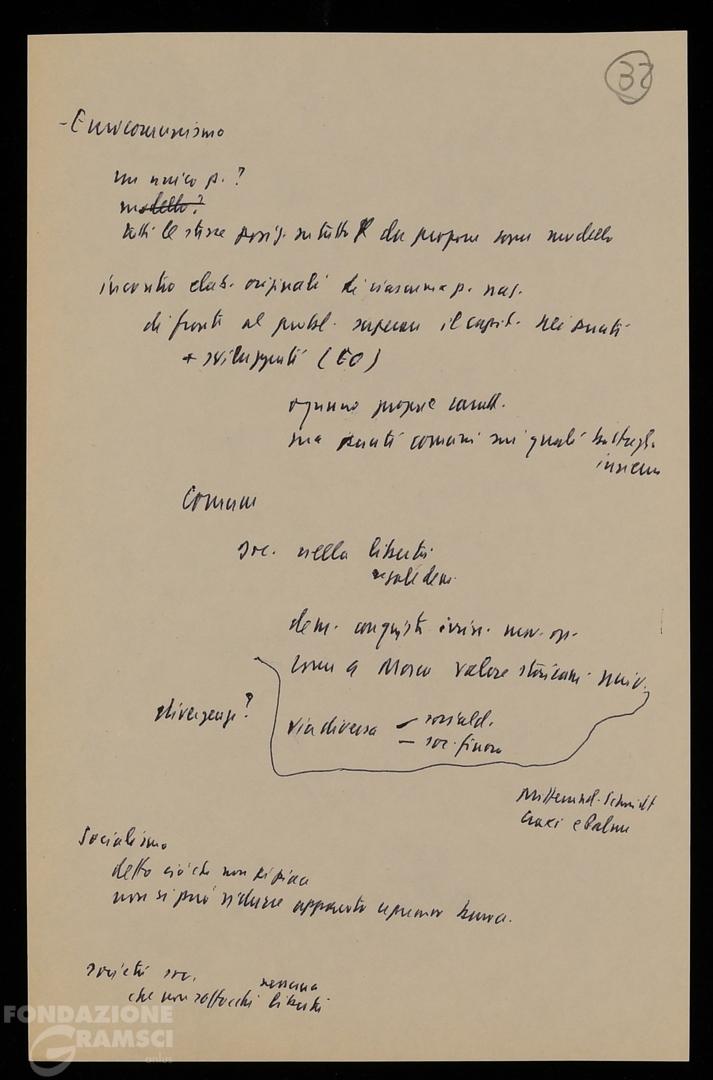 32
- Eurocomunismo
un unico p. ?
modello?
tutti le stesse posiz. su tutto che propone come modello
incontro elab. originali di ciascun p. naz.
di fronte al probl. superare il capit. nei punti
+ sviluppati (EO)
ognuno proprie caratt.
ma punti comuni sui quali battagl.
insieme
Comune
soc. nella libertà
e sulle dem.
dem. conquista irrin. mov. op.
come a Mosca valore storicam. univ.
divergenze?
via diversa - socialdem.
- soc. finora
Mitterrand - Schmidt
Craxi e Palme
Socialismo
detto ciò che non ci piace
non si può ridurre apparato
società soc.
nessuna
che non soffochi libertà
FONDAZIONE
GRAMSCI
onlus